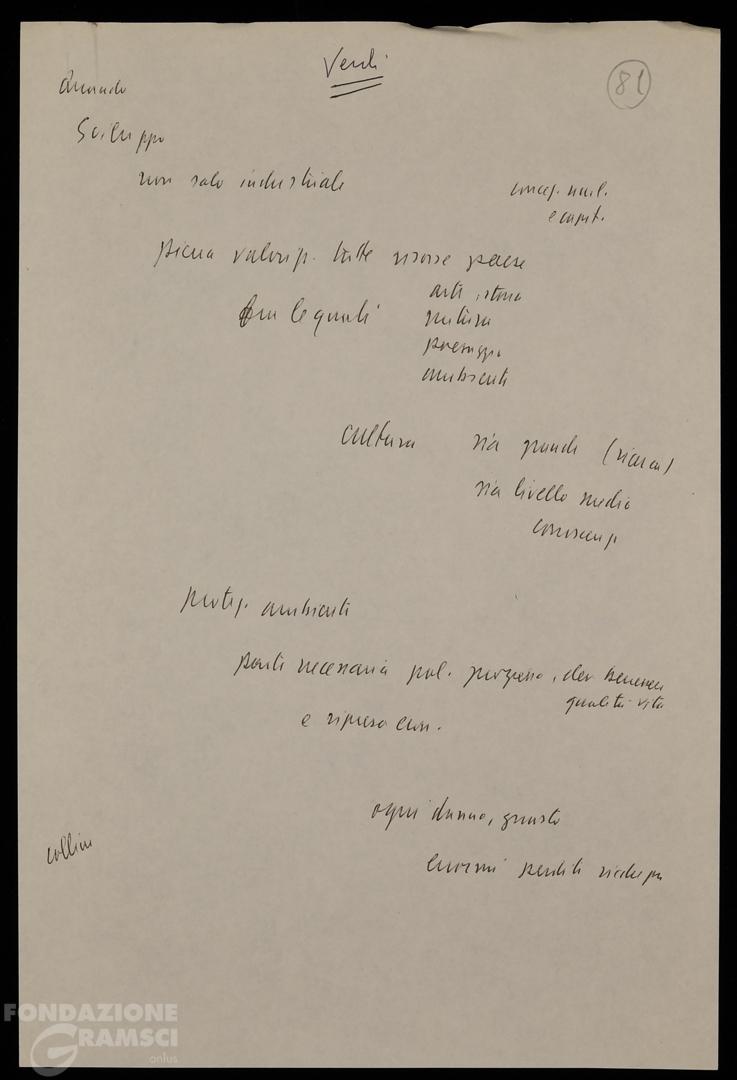 Verdi
81
Quando
Sviluppo
non solo industriale
concez. nucl.
e comput.
piena valorizz. tutte risorse paese
fra le quali
arte, storia
natura
paesaggio
ambiente
cultura sia grande (ricerca)
sia livello medio
conoscenz
protez. ambiente
parte necessaria pol. progresso, del benessere
qualità vita
e ripresa econ.
ogni danno, guasto
colline
enormi perdite
FONDAZIONE
GRAMSCI
onlus